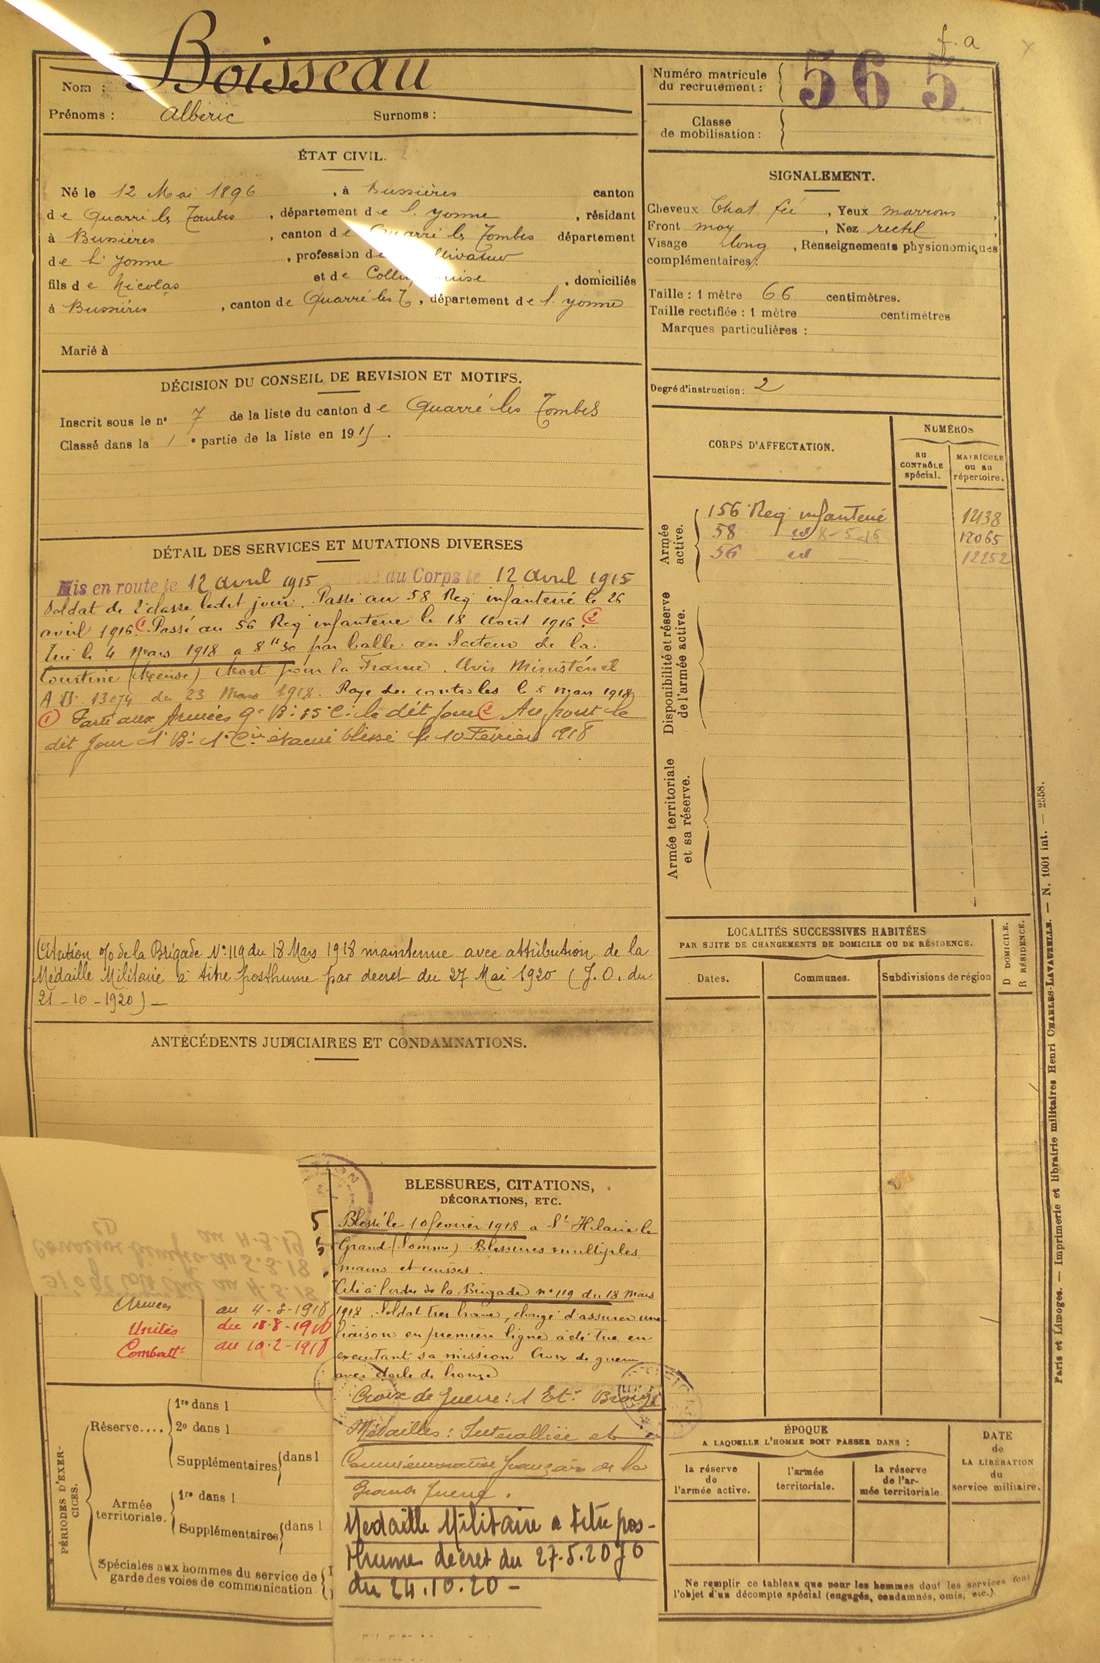 f. a
Nom : Boisseau
Prénoms : Albéric Surnoms :
Numéro matricule du recrutement : 565
Classe de mobilisation :
ÉTAT CIVIL.
Né le 12 Mai 1896, à Bussières canton
de Quarré les Tombes, département de l'Yonne, résidant
à Bussières, canton de Quarré les Tombes département
de l'Yonne, profession de
fils de Nicolas et de , domiciliés
à Bussières, canton de Quarré les T, département de l'Yonne
Marié à
SIGNALEMENT.
Cheveux Chat fcé, Yeux marrons,
Front moy, Nez rectil
Visage long, Renseignements physionomiques
complémentaires :
Taille : 1 mètre 66 centimètres.
Taille rectifiée : 1 mètre centimètres
Marques particulières :
Degré d'instruction : 2
DÉCISION DU CONSEIL DE REVISION ET MOTIFS.
Inscrit sous le n° 7 de la liste du canton de Quarré les Tombes
Classé dans la 1e partie de la liste en 1915.
CORPS D'AFFECTATION.
NUMÉROS
AU CONTRÔLE spécial.
MATRICULE OU AU répertoire.
Armée active.
156 Reg infanterie 12138
58 id 8-5-16 12065
56 id 12252
Disponibilité et réserve de l'armée active.
Armée territoriale et sa réserve.
DÉTAIL DES SERVICES ET MUTATIONS DIVERSES
Mis en route le 12 avril 1915 du Corps le 12 avril 1915
Soldat de 2e classe ledit jour. Passé au 58 Reg infanterie le 26
avril 1916 (1) Passé au 56 Reg infanterie le 18 Août 1916. (2)
Tué le 4 Mars 1918 à 8h30 par balle au Secteur de la
Courtine (Meuse) Mort pour la France. Avis Ministériel
A D. 13074 du 23 Mars 1918. Rayé des controles le 5 mars 1918
(1) Parti aux Armées 9e B: 35e C: le dit jour (2) Au front le
dit jour 1e B: 1e Cie évacué blessé le 10 Février 1918
Citation O/ de la Brigade N° 119 du 18 Mars 1918 maintenue avec attribution de la
Médaille Militaire à titre posthume par decret du 27 Mai 1920 (J.O. du
21-10-1920) —
ANTÉCÉDENTS JUDICIAIRES ET CONDAMNATIONS.
LOCALITÉS SUCCESSIVES HABITÉES
PAR SUITE DE CHANGEMENTS DE DOMICILE OU DE RÉSIDENCE.
Dates. Communes. Subdivisions de région
D DOMICILE. R RÉSIDENCE.
BLESSURES, CITATIONS,
DÉCORATIONS, ETC.
Blessé le 10 février 1918 à St Hilaire le
Grand (Somme) Blessures multiples
mains et cuisses.
Cité à l'ordre de la Brigade n° 119 du 18 mars
1918 Soldat très brave, chargé d'assurer une
liaison en première ligne a été tué en
exécutant sa mission Croix de guerre
avec étoile de bronze
Croix de Guerre: 1 Et. Bronze
Médailles: Interalliée et
Commémorative française de la
Grande Guerre.
Médaille Militaire à titre pos-
thume décret du 27.5.20 JO
du 24.10.20 -
Armées au 4-3-1918
Unités du 18-8-1916
Combatt: au 10-2-1918
PÉRIODES D'EXERCICES.
Réserve....
1re dans l
2e dans l
Supplémentaires dans l
Armée territoriale.
1re dans l
Supplémentaires dans l
Spéciales aux hommes du service de
garde des voies de communication
ÉPOQUE
A LAQUELLE L'HOMME DOIT PASSER DANS :
la réserve de l'armée active.
l'armée territoriale.
la réserve de l'armée territoriale
DATE de LA LIBÉRATION du service militaire.
Ne remplir ce tableau que pour les hommes dont les services font
l'objet d'un décompte spécial (engagés, condamnés, omis, etc.)
Paris et Limoges. — Imprimerie et librairie militaires Henri CHARLES-LAVAUZELLE. — N. 1001 int. — 2558.